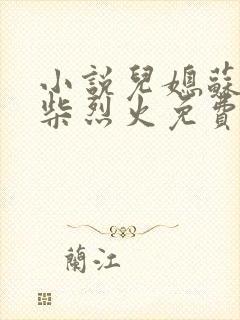 小說兒媳蘇
柴烈火免費
蘭江